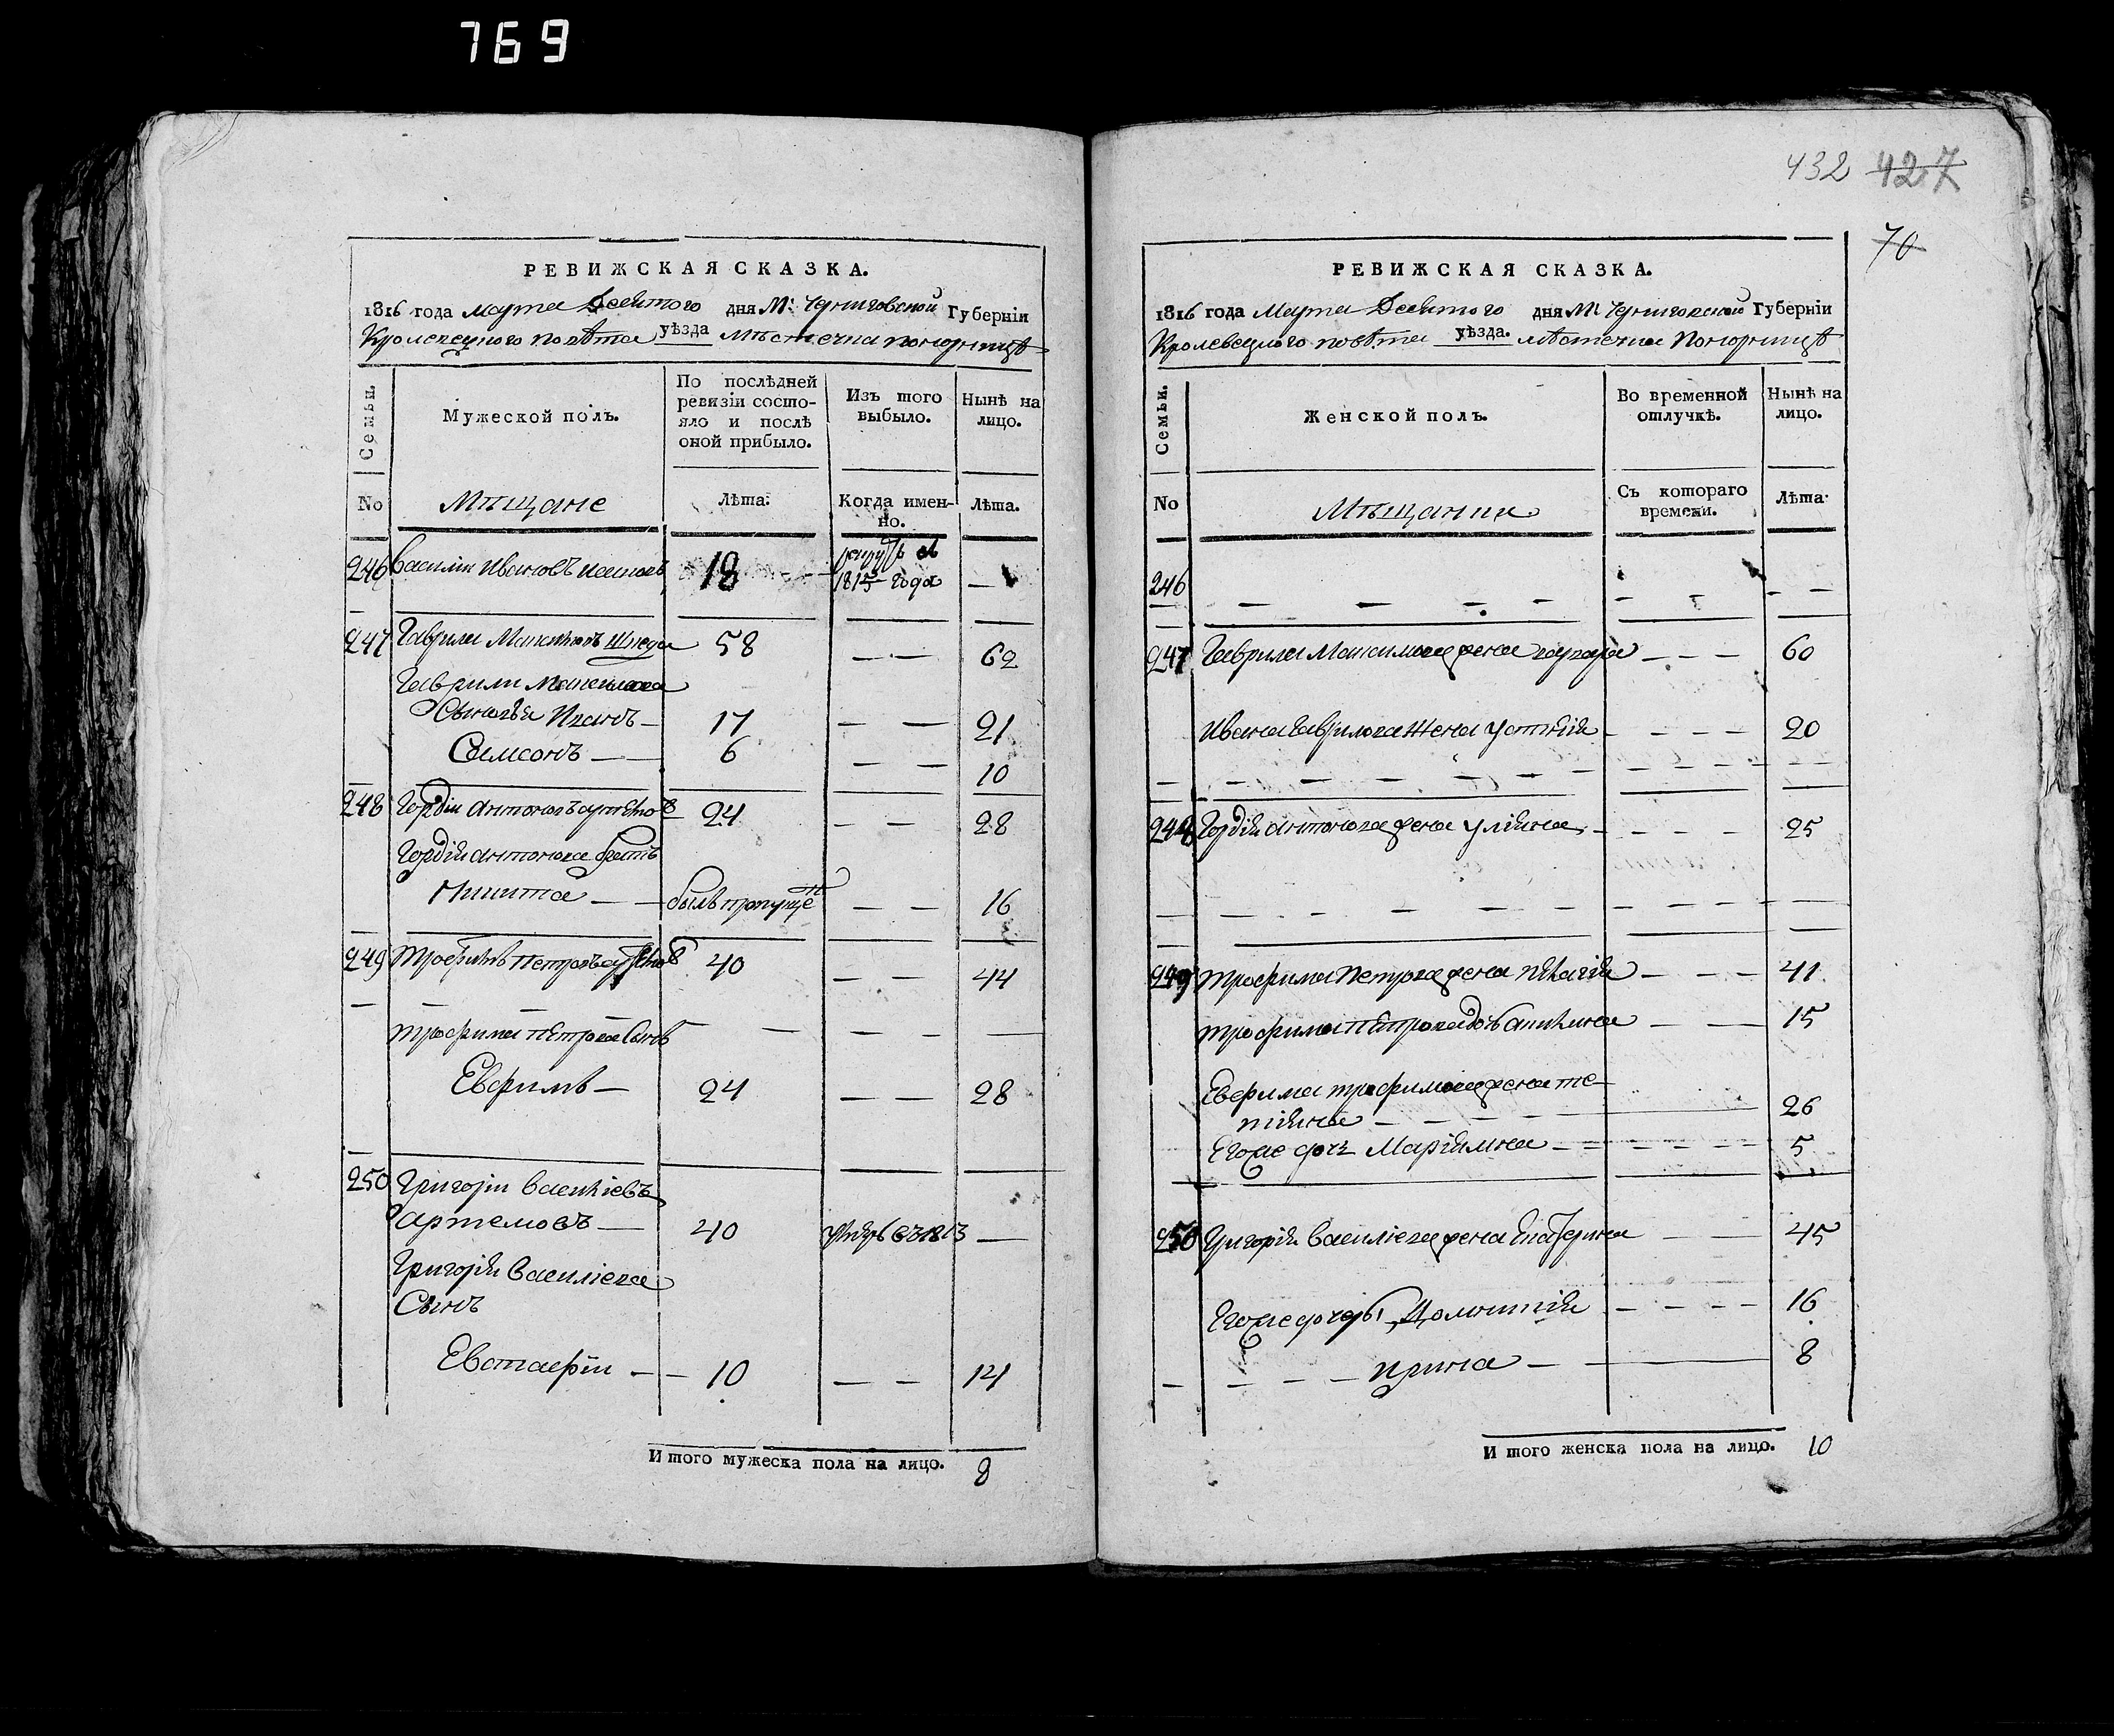 769
432 427
70
РЕВИЖСКАЯ СКАЗКА.
1816 года марта Девятого дня М: Черниговской Губерніи
Кролевецкого повѣта уѣзда мѣстечка Понорницѣ
Семьи.
Мужеской полъ.
По послѣдней ревизіи состояло и послѣ оной прибыло.
Изъ того выбыло.
Нынѣ на лицо.
No
Мѣщане
Лѣта.
Когда именно.
Лѣта.
246 Василии Ивановъ 18 1815 года —
247 Гаврила Максимовъ 58 — — 62
Гаврили Максимова
Сыновья Иванъ — 17 — — 21
Самсонъ — — 6 — — 10
248 Гордіи Антоновъ 24 — — 28
Гордія Антонова братъ
Никита — — былъ пропуще — — 16
249 Трофимъ Петровъ 40 — — 44
Трофима Петрова Сынъ
Евфимъ — 24 — — 28
250 Григоріи Василіевъ
Артемовъ — 40 въ 1813 —
Григорія Василіева
Сынъ
Евстафіи — — 10 — — 14
Итого мужеска пола на лицо. 8
РЕВИЖСКАЯ СКАЗКА.
1816 года Марта Девятого дня М: Черниговской Губерніи
Кролевецкого повѣта уѣзда. мѣстечка Понорницѣ
Семьи.
Женской полъ.
Во временной отлучкѣ.
Нынѣ на лицо.
No
Мѣщанки
Съ котораго времени.
Лѣта.
246
247 Гаврила Максимова жена — — — 60
Ивана Гаврилова жена Устинія — — — — 20
248 Гордія Антонова жена Уліяна — — — — 25
249 Трофима Петрова жена — — — 41
Трофима Петрова — — 15
Евфима Трофимова жена Те-
тіяна — — — — 26
Егоже дочь Маріямна — — — — — — 5
250 Григорія Василіева жена Екатерина — — 45
Егоже дочери — — — — 16
Ирина — — 8
Итого женска пола на лицо. 10